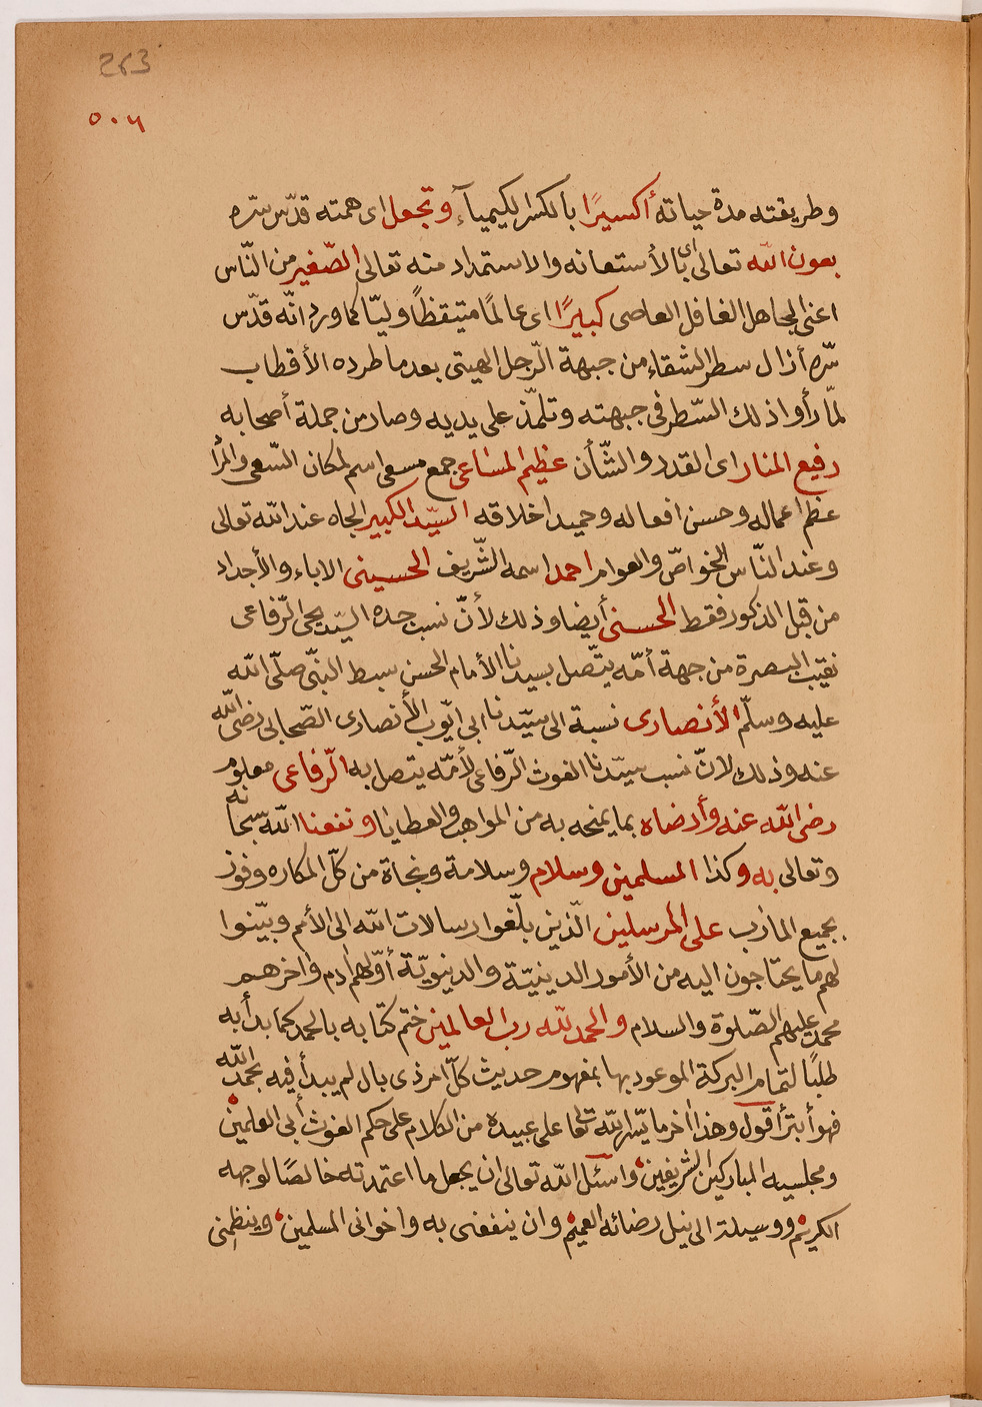 263
٥٠٦
وطريقته مدة حياته أكسيرًا بالكسر الكيمياء وتجعل اى همته قدّس سّره
بعون الله تعالى اى بالأستعانه والاستمداد منه تعالى الصّغير من النّاس
اعنى الجاهل الغافل العاصى كبيرًا اى عالمًا متيقظًا وليّا كما ورد انّه قدّس
سّره أزال سطر الشقاء من جبهة الّرجل الهيتى بعد ما طرده الأقطاب
لمّا رأوا ذلك السّطر فى جبهته وتلمّذ على يديه وصار من جملة أصحابه
رفيع المنار اى القدر والشّأن عظيم المساعى جمع مسعى اسم لمكان السّعى والمرأ
عظم اعماله وحسن افعاله وحميد اخلاقه السيّد الكبير الجاه عند الله تعالى
وعند النّاس الخواصّ والعوام احمد اسمه الشّريف الحسينى الاباء والأجداد
من قبل الذكور فقط الحسنى أيضا وذلك لأنّ نسب جده السيّد يحيى الّرفاعى
نقيب البصرة من جهة أمّه يتّصل بسيدنا الأمام الحسن سبط النبّى صلّى الله
عليه وسلّم الأنصارى نسبة الى سيّدنا ابى ايّوب الأنصارى الصّحابى رضى الله
عنه وذلك لانّ نسب سيّدنا الغوث الّرفاعى لأمّه يتصل به الّرفاعى معلوم
رضى الله عنه وأرضاه بما يمنحه به من المواهب والعطايا ونفعنا الله سبحانه
وتعالى به وكذا المسلمين وسلام وسلامة ونجاة من كلّ المكاره وفوز
بجميع المأرب على المرسلين الّذين بلّغوا رسالات الله الى الأمم وبيّنوا
لهم ما يحتاجون اليه من الأمور الدينيّة والدنيويّة أوّلهم أدم واخرهم
محمد عليهم الصّلوة والسلام والحمد لله رب العالمين ختم كتابه بالحمد كما بدأ به
طلبًا لتمام البركة الموعود بها بمفهوم حديث كلّ امر ذى بال لم يبدأ فيه بحمد الله
فهو أبتر أقول وهذا أخر ما يسّر الله تعا على عبيده من الكلام على حكم الغوث أبى العلمين
ومجلسيه المباركين الشريفين واسئل الله تعالى ان يجعل ما اعتمدته خالصًا لوجهه
الكريم ووسيلة الى نيل رضائه العميم وان ينفعنى به واخوانى المسلمين وينظمنى